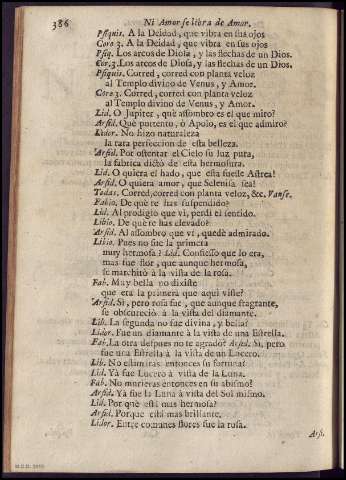 386
Ni Amor se libra de Amor.
Psiquis. A la Deidad, que vibra en sus ojos
Coro 3. A la Deidad, que vibra en sus ojos
Psiq. Los arcos de Diosa, y las flechas de un Dios.
Cor. 3. Los arcos de Diosa, y las flechas de un Dios.
Psiquis. Corred, corred con planta veloz
al Templo divino de Venus, y Amor.
Coro 3. Corred, corred con planta veloz
al Templo divino de Venus, y Amor.
Lid. O Jupiter, què assombro es el que miro?
Arsid. Què portento, ò Apolo, es el que admiro?
Lidor. No hizo naturaleza
la rara perfeccion de esta belleza.
Arsid. Por ostentar el Cielo su luz pura,
la fabrica dictò de esta hermosura.
Lid. O quiera el hado, que esta fuesse Astrea!
Arsid. O quiera amor, que Selenisa sea!
Todas. Corred, corred con planta veloz, &c. Vanse.
Fabio. De què te has suspendido?
Lid. Al prodigio que vì, perdì el sentido.
Libio. De què te has elevado?
Arsid. Al assombro que vì, quedè admirado.
Libio. Pues no fue la primera
muy hermosa? Lid. Confiesso que lo era,
mas fue flor, que aunque hermosa,
se marchitò à la vista de la rosa.
Fab. Muy bella no dixiste
que era la primera que aqui viste?
Arsid. Si, pero rosa fue, que aunque fragrante,
se obscureciò à la vista del diamante.
Lib. La segunda no fue divina, y bella?
Lidor. Fue un diamante à la vista de una Estrella.
Fab. La otra despues no te agradò? Arsid. Si, pero
fue una Estrella à la vista de un Lucero.
Lib. No estimàras entonces su fortuna?
Lid. Yà fue Lucero à vista de la Luna.
Fab. No murieras entonces en su abismo?
Arsid. Yà fue la Luna à vista del Sol mismo.
Lid. Por què està mas hermosa?
Arsid. Porque està mas brillante.
Lidor. Entre comunes flores fue la rosa.
Arsi.